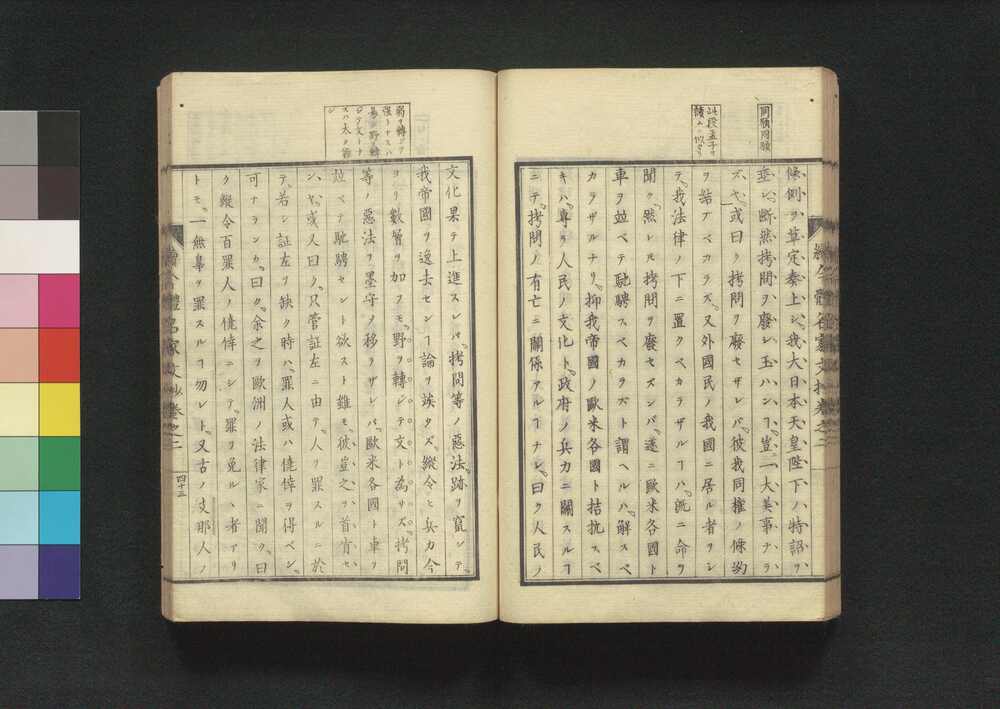 同願同願
條例ヲ草定奏上シ、我大日本天皇陛下ハ特詔ヲ
垂レ、断然拷問ヲ廢シ玉ハンヿ、豈一大美事ナラ
ズヤ、或曰ク拷問ヲ廢セザレバ、彼我同權ノ條約
ヲ結ブベカラズ、又外國民ノ我國ニ居ル者ヲシ
テ、我法律ノ下ニ置クベカラザルヿハ、既ニ命ヲ
聞ク、然レ𪜈拷問ヲ廢セズンバ、遂ニ歐米各國ト
車ヲ並ベテ馳騁スベカラズト謂ヘルハ、解スベ
カラザルナリ、抑我帝國ノ歐米各國ト拮抗スベ
キハ、専ラ人民ノ文化ト、政府ノ兵力ニ關スルヿ
ニテ、拷問ノ有亡ニ關係アルヿナシ、曰ク人民ノ
續今體名家文抄卷之二
弱ヲ轉ジテ
強トナスハ
易シ野ヲ轉
ジテ文トナ
スハ太タ難
シ
文化果テ上進スレバ、拷問等ノ惡法、跡ヲ竄シテ、
我帝國ヲ逸去センヿ論ヲ竢タズ、縱令ヒ兵力今
ヨリ數層ヲ加フモ、野ヲ轉ジテ文ト為サズ、拷問
等ノ惡法ヲ墨守ノ移ラザレバ、歐米各國ト車ヲ
竝ベテ馳騁セント欲スト雖モ、彼豈之ヲ首肯セ
ンヤ、或人曰ク、只管証左ニ由テ、人ヲ罪スルニ於
テ、若シ証左ヲ缺ク時ハ、罪人或ハ僥倖ヲ得ベシ、
可ナランカ、曰ク、余之ヲ歐洲ノ法律家ニ聞ク、曰
ク縱令百罪人ノ僥倖ニシテ、罪ヲ免ルヽ者アリ
トモ、一無辜ヲ罪スルヿ勿レト、又古ノ支那人ノ
續今體名家文抄卷之二
四十三